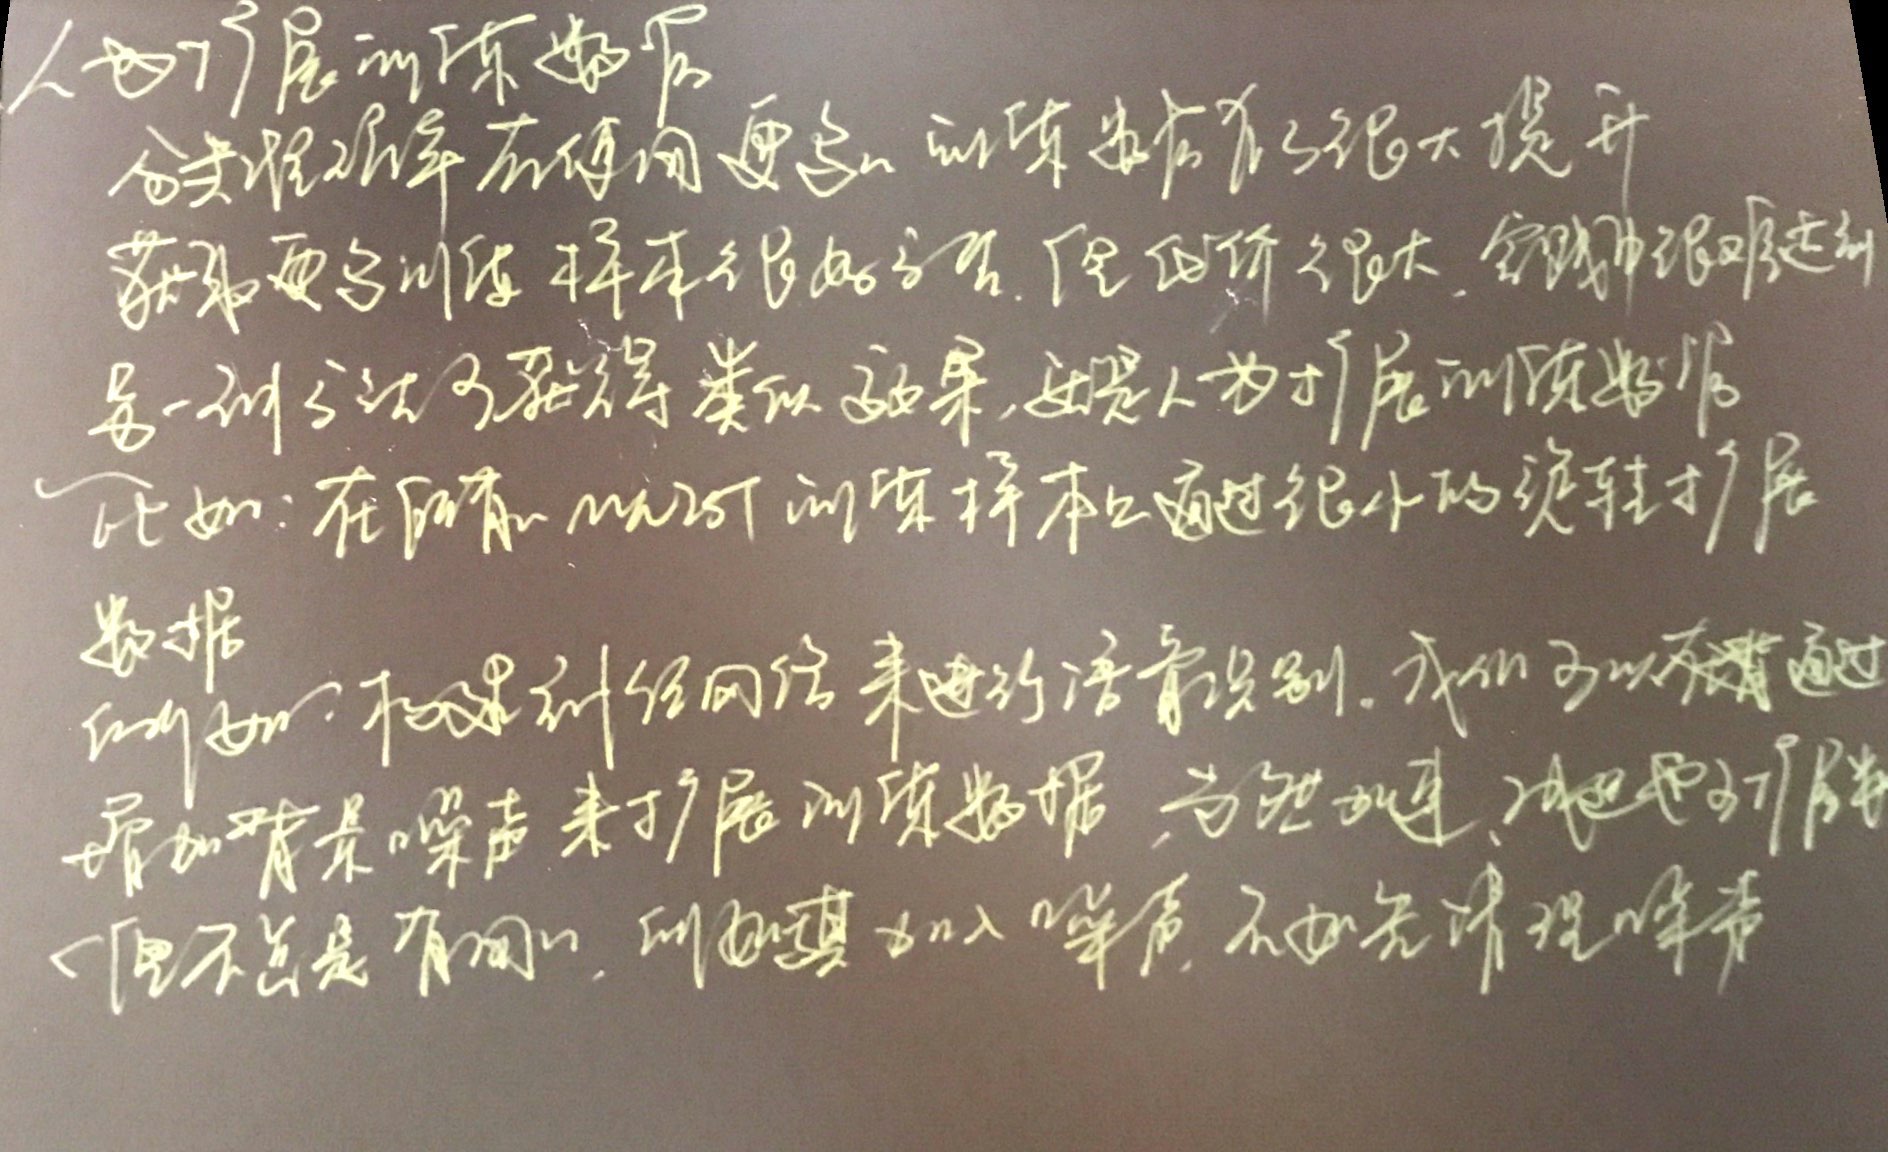 人为扩展训练数据
分类准确率在使用更多的训练数据有了很大提升
获取更多训练样本很好方法.但代价很大,实践中很难达到
另一种方法可获得类似效果,就是人为扩展训练数据
比如:在所有的MNIST训练样本上通过很小的旋转扩展
数据
例如:构建神经网络来进行语音识别.我们可以通过
增加背景噪声来扩展训练数据,当然加速、减速也可扩展数
但不总是有用的,例如其加入噪声,不如先清理噪声